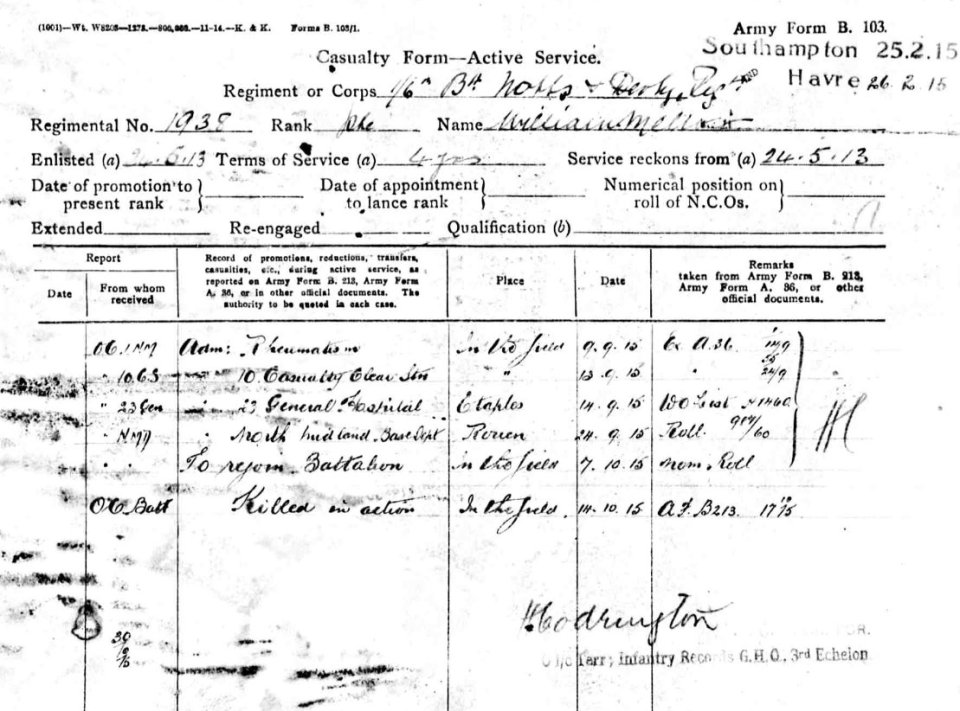 (1001)—Wt. W8205—1273.—800,000.—11-14.—K. & K. Forms B. 103/1.
Army Form B. 103.
Southampton 25.2.15
Casualty Form—Active Service.
Havre 26.2.15
Regiment or Corps 1/6th Bn Notts & Derby Regt
Regimental No. 1938 Rank Pte Name William
Enlisted (a) 24.5.13 Terms of Service (a) 4 yrs Service reckons from (a) 24.5.13
Date of promotion to present rank
Date of appointment to lance rank
Numerical position on roll of N.C.Os.
Extended Re-engaged Qualification (b)
Report
Date
From whom received
Record of promotions, reductions, transfers, casualties, etc., during active service, as reported on Army Form B. 213, Army Form A. 36, or in other official documents. The authority to be quoted in each case.
Place
Date
Remarks taken from Army Form B. 213, Army Form A. 36, or other official documents.
Adm: Rheumatism In the field 9.9.15 A.36
" 10 CS " 10 Casualty Clear Stn " 13.9.15 "
" 23 Gen " 23 General Hospital Etaples 14.9.15 WO List
" NMD " North Midland Base Dept Rouen 24.9.15 Roll
" " To rejoin Battalion In the field 7.10.15 Nom. Roll
OC Batt Killed in action In the field. 14.10.15 A.F. B213.
H Codrington
O i/c Terr; Infantry Records G.H.Q., 3rd Echelon